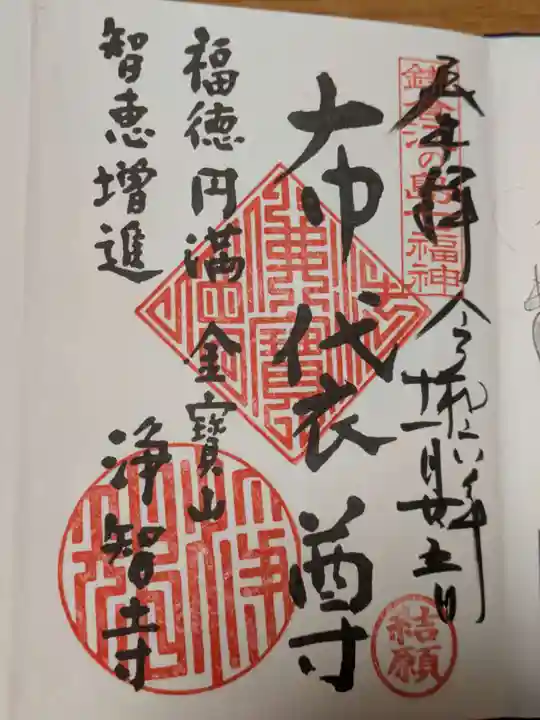 奉拝
令和六年
十一月廿五日
鎌倉江の島七福神
布袋尊
福徳円満
智恵増進
金寶山
浄智寺
佛法僧寶
結願